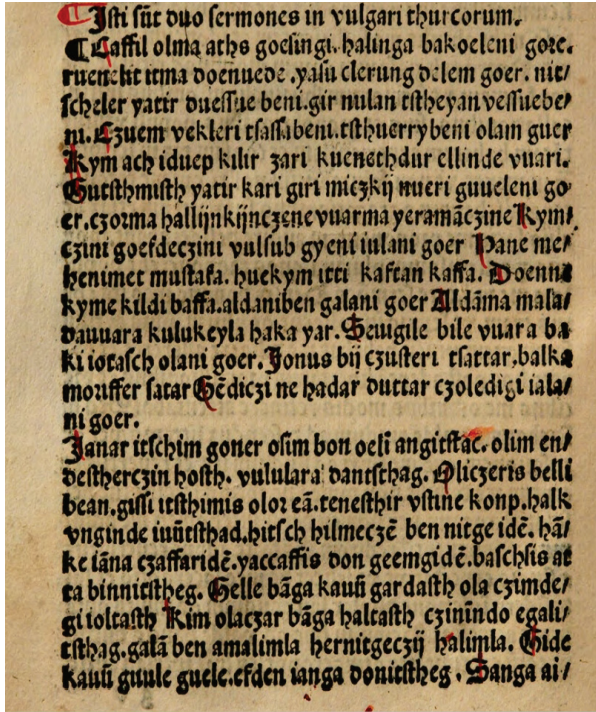 Isti sūt duo sermones in vulgari thurcorum.
Caffil olma aths goesingi. halinga bakoeleni gore.
ruenekit itma doenuede .yasu clerung delem goer. nit/
scheler yatir duessue beni.gir nulan tstheyan vessuebe/
ni. Czuem vekleri tsassabeni.tsthuerrybeni olam guer
Kym ach iduep kilir zari kuenethdur ellinde vuari.
Gutsthmisth yatir kari giri miczkij nueri guueleni go
er.czorma hallijnkijnczene vuarma yeramāczine Kym
czini goesdeczini vulsub gyeni iulani goer Hane me/
henimet mustafa. huekym itti kaftan kaffa. Doenna
kyme kildi baffa.aldaniben galani goer Aldāma mala/
dauuara kulukeyla haka yar. Seugile bile vuara ba
ki iotasch olani goer. Jonus bij czusteri tsattar.balka
morisser satar Gēdiczi ne hadar duttar czoledigi iala/
ni goer.
Janar itschim goner osim bon oeli angitstac. olim en/
destherczin hosth. vululara dantsthag. Oliczeris belli
bean.gissi itsthimis olor eā.tenesthir vstine konp.halk
vnginde iuūtsthad.hitsch hilmeczē ben nitge idē. hā/
ke iāna czaffaridē.yaccaffis don geemgidē.baschsis at
ta binnitstheg. Gelle bāga kauū gardasth ola czimde/
gi ioltasth Kim olaczar bāga haltasth czinīndo egali/
tsthag.galā ben amalimla hernitgeczij halimla. Gide
kauū guule guele.efden ianga donitstheg. Sanga ai/